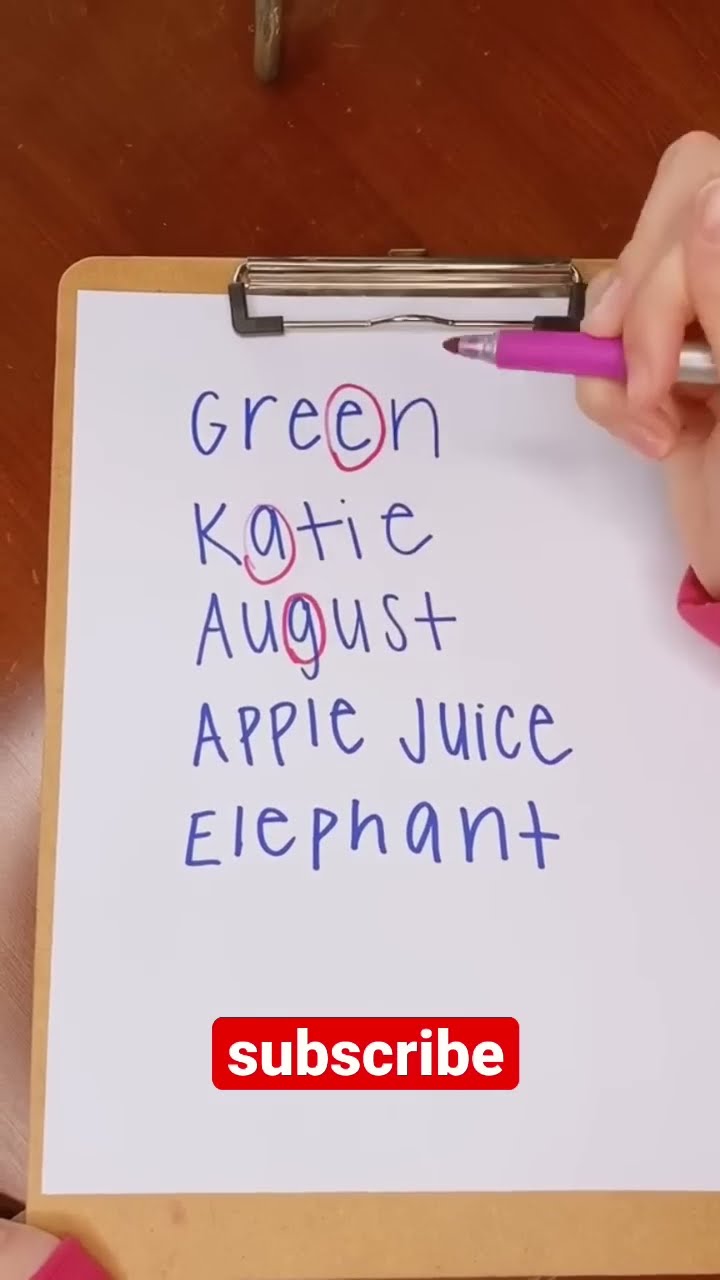 Green
Katie
August
Apple Juice
Elephant
subscribe